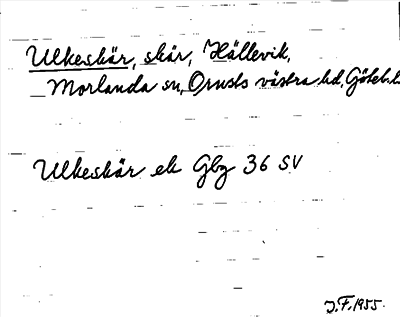 Ulkeskär, skär, Hällevik,
Morlanda sn, Orusts västra hd, Göteb.l.
Ulkeskär ek Gbg 36 SV
J.F. 1955.